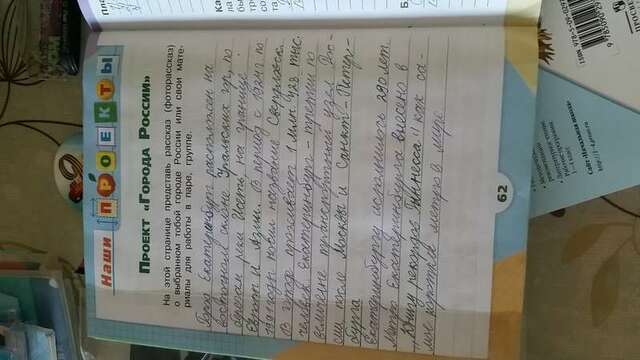 Наши
ПРОЕКТЫ
ПРОЕКТ «ГОРОДА РОССИИ»
На этой странице представь рассказ (фоторассказ)
о выбранном тобой городе России или свои мате-
риалы для работы в паре, группе.
Город Екатеринбург расположен на
восточном склоне Уральских гор, по
берегам реки Исеть, на границе
Европы и Азии. В период с 1924 г по
1991 годы носил название Свердловск.
В городе проживает 1 млн. 428 тыс.
человек. Екатеринбург - третий по
величине транспортный узел Рос-
сии после Москвы и Санкт-Петер-
бурга
Екатеринбургу исполнилось 290 лет.
Метро Екатеринбурга внесено в
"Книгу рекордов Гиннесса" как са-
мое короткое метро в мире.
62